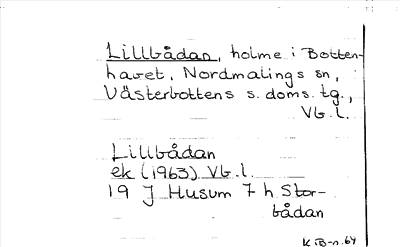 Lillbådan, holme i Botten-
havet, Nordmalings sn,
Västerbottens s. doms. tg.,
Vb. l.
Lillbådan
ek (1963) Vb. l.
19 J Husum 7 h Stor-
bådan